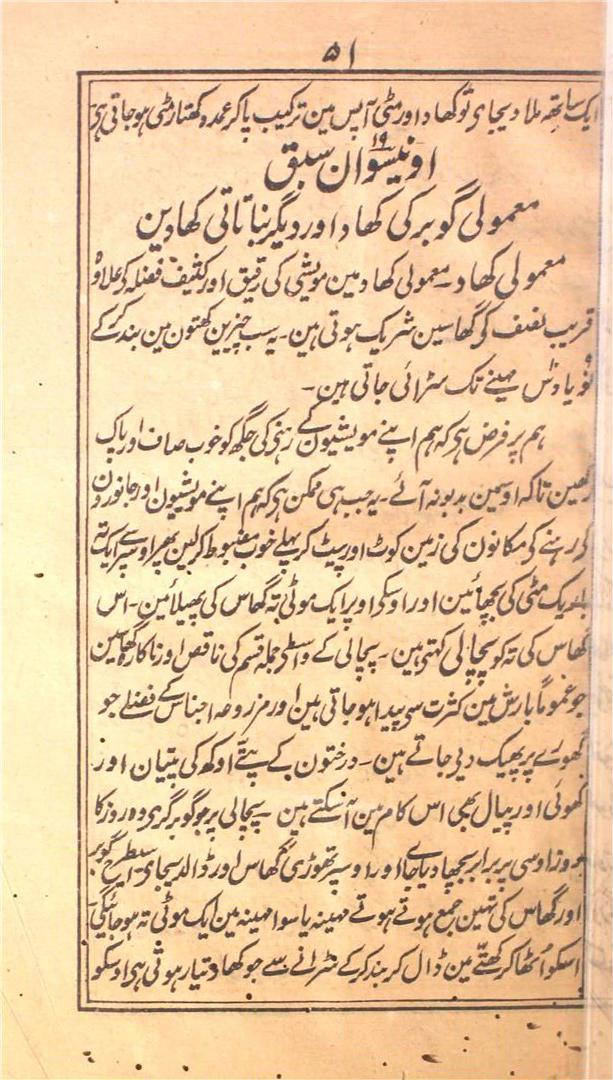 ۵۱
ایک ساتھ ملا دیجای تو کھاد اور مٹی آپس مین ترکیب پا کر عمدہ کھتار مٹی ہو جاتی ہی
اونیسوان ۱۹ سبق
معمولی گوبر کی کھاد اور دیگر نباتاتی کھادین
معمولی کھاد۔ معمولی کھاد مین مویشی کی رقیق اور کثیف فضلہ کے علاوہ
قریب نصف کی گھاسین شریک ہوتی ہین۔ یہ سب چیزین کھتون مین بند کرکے
نو یا دس مہینے تک سڑائی جاتی ہین۔
ہم پر فرض ہی کہ ہم اپنے مویشیون کے رہنی کی جگہ کو خوب صاف اور پاک
رکھین تاکہ اوسمین بدبو نہ آئے۔ یہ جب ہی ممکن ہی کہ ہم اپنے مویشیون اور جانورون
کی رہنے کی مکانون کی زمین کوٹ اور پیٹ کر پہلے خوب مضبوط کر لین پھر اوسپر سے ایک تہ
باریک مٹی کی بچھائین اور اوسکی اوپر ایک موٹی تہ گھاس کی پھیلائین۔ اس
گھاس کی تہ کو بچالی کہتی ہین۔ بچالی کے واسطی جملہ قسم کی ناقص اور ناکارہ گھاسین
جو عموماً بارش مین کثرت سی پیدا ہو جاتی ہین اور مزروعہ اجناس کے فضلے جو
گھورے پر پھیک دیی جاتے ہین۔ درختون کے پتے اوکھ کی پتیان اور
کھوئی اور پیال بھی اس کام مین آ سکتے ہین۔ بچالی پر جو گوبر گری وہ روز کا
روز اوسی پر برابر بچھا دیا جاے اور اوسپر تھوڑی گھاس اور ڈالدیجای۔ اسیطرح گوبر
اور گھاس کی تہین جمع ہوتے ہوتے مہینہ یا سوا مہینہ مین ایک موٹی تہ ہو جائیگی
اسکو اٹھا کر کھتے مین ڈال کر بند کر کے سڑانے سے جو کھاد تیار ہوتی ہی اوسکو